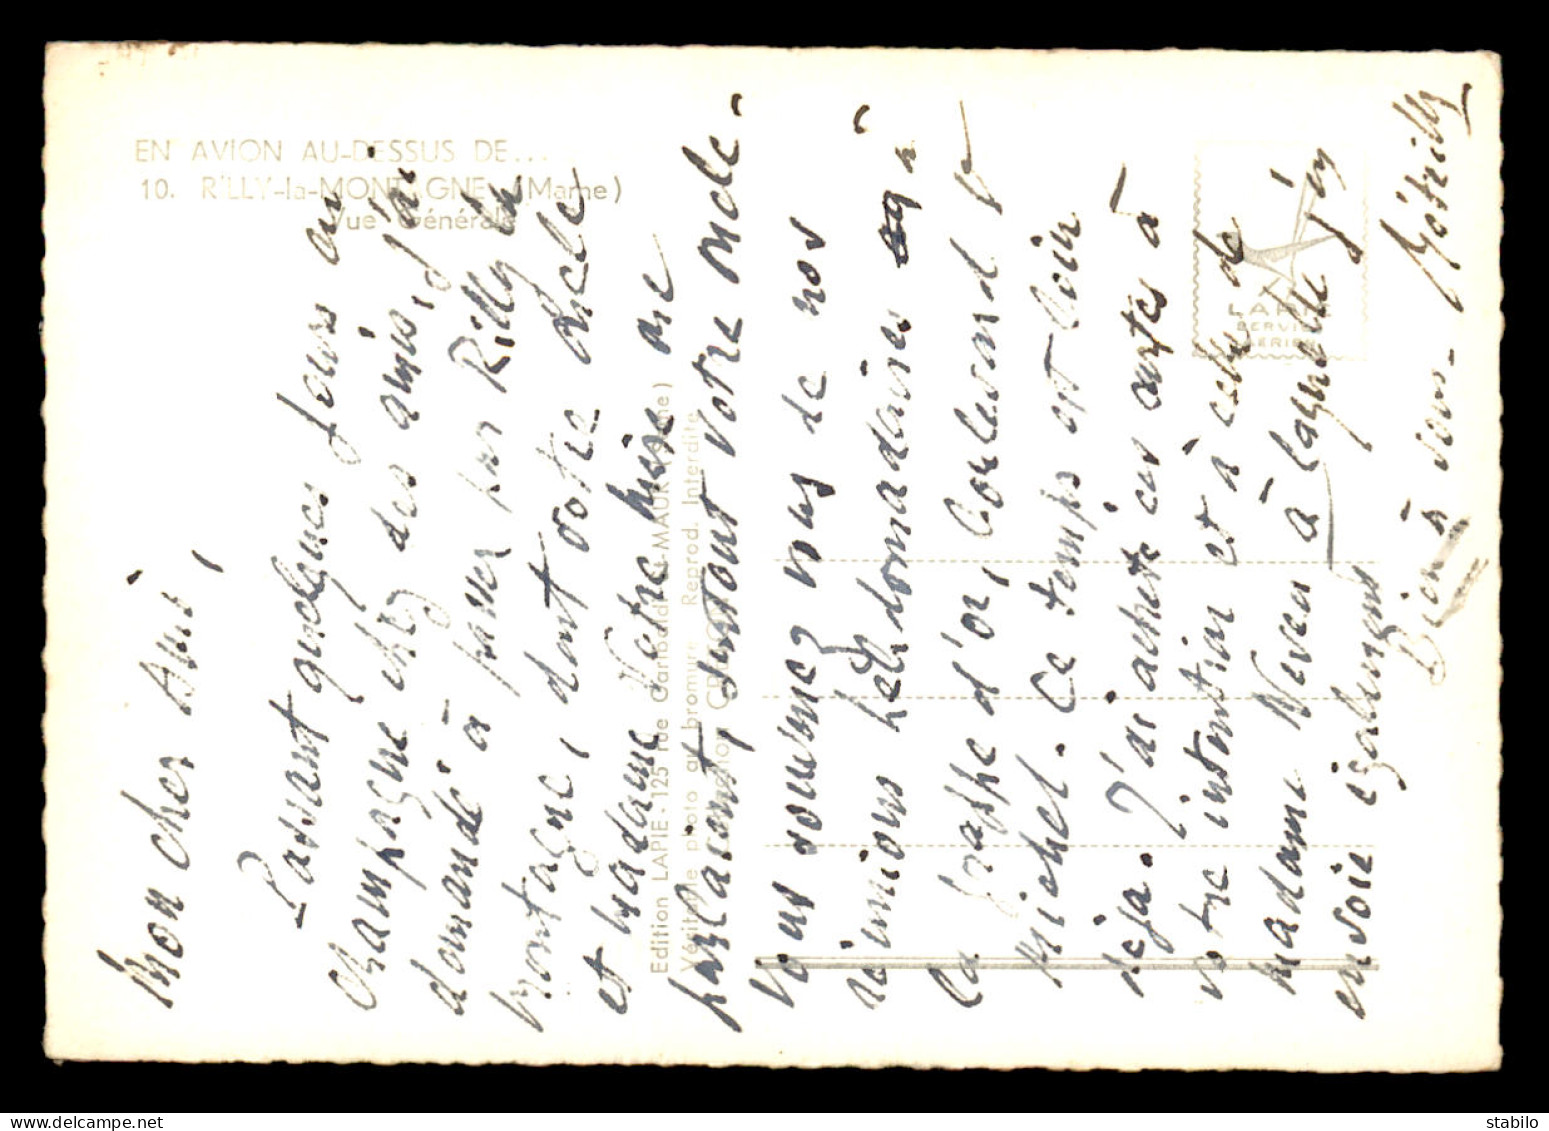 EN AVION AU-DESSUS DE...
10. RILLY-la-MONTAGNE (Marne)
Vue Générale
Mon cher Ami,
Passant quelques jours en
champagne chez des amis, j'ai
demandé à passer par Rilly la
montagne, dont votre oncle
et Madame Votre mère me
parlaient, surtout votre oncle.
Vous souvenez vous de nos
réunions hebdomadaires "à
la grappe d'or, boulevard St
Michel. Ce temps est loin
déjà. J'ai acheté ces cartes à
votre intention et à celle de
Madame Neveu à laquelle j'en
envoie également
Bien à vous.
Edition LAPIE - 125 rue Garibaldi St-MAUR (Seine)
Véritable photo au bromure Reprod. Interdite
LAPIE
SERVICE
AERIEN
www.delcampe.net
steboz